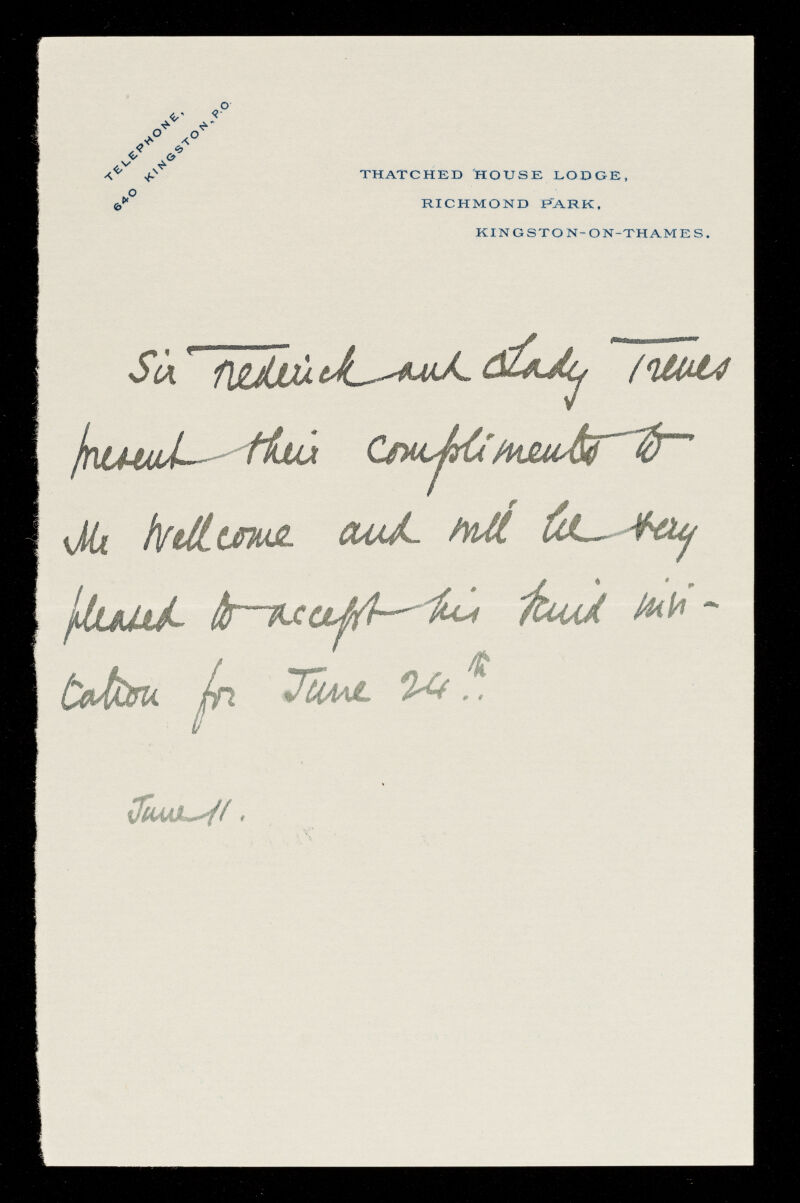 TELEPHONE,
640 KINGSTON, P.O.
THATCHED HOUSE LODGE,
RICHMOND PARK,
KINGSTON-ON-THAMES.
Sir Frederick and Lady Treves
present their compliments to
Mr Wellcome and will be very
pleased to accept his kind invi-
tation for June 24th.
June 11.